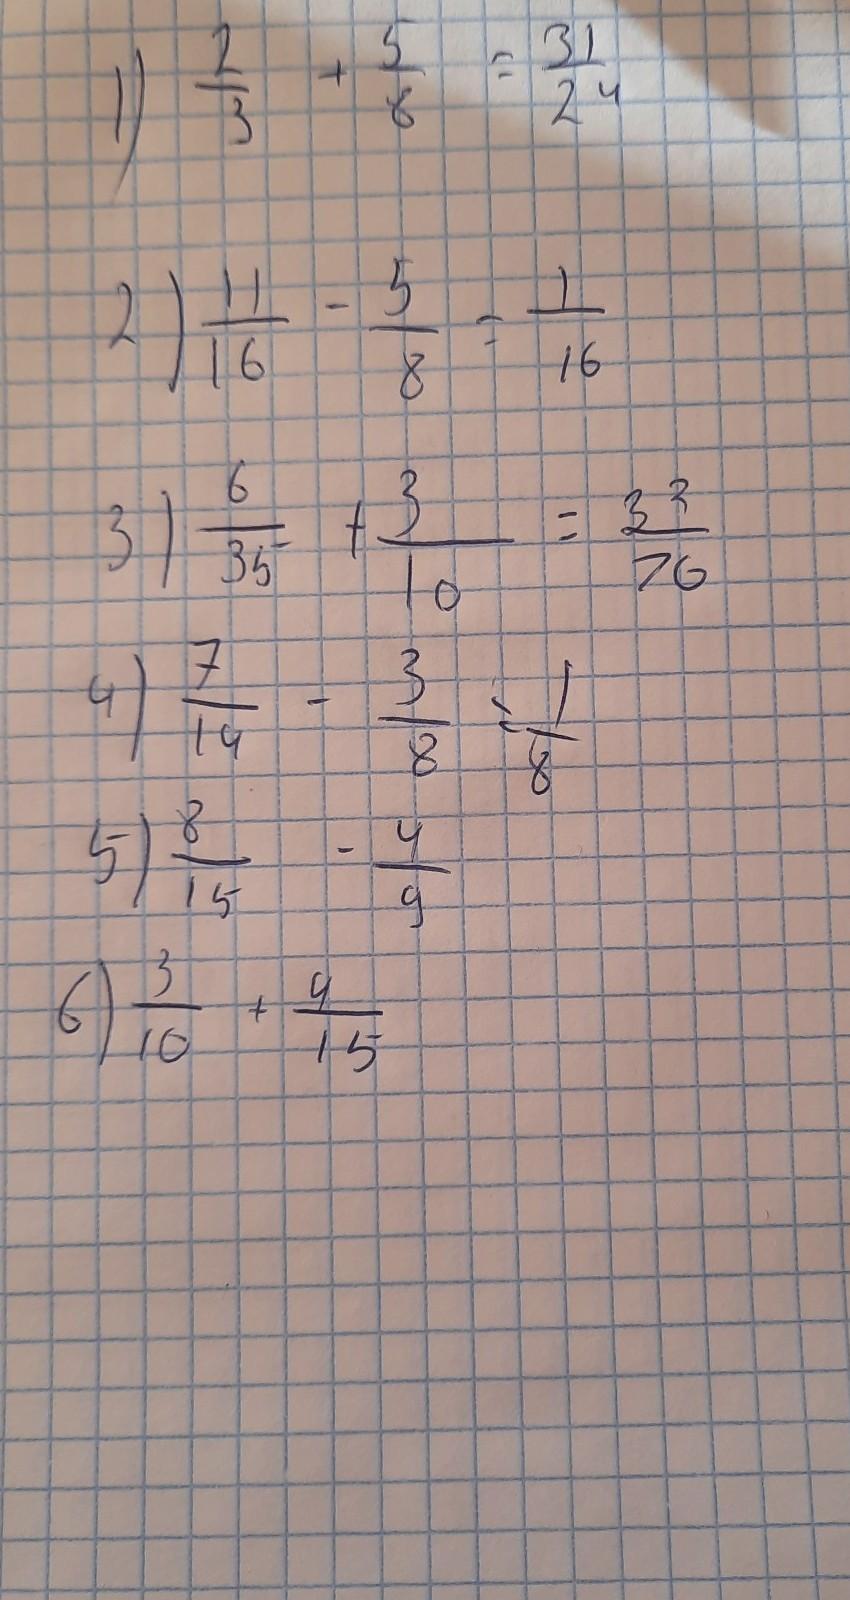 1) 2/3 + 5/8 = 31/24
2) 11/16 - 5/8 = 1/16
3) 6/35 + 3/10 = 33/70
4) 7/14 - 3/8 = 1/8
5) 8/15 - 4/9
6) 3/10 + 4/15